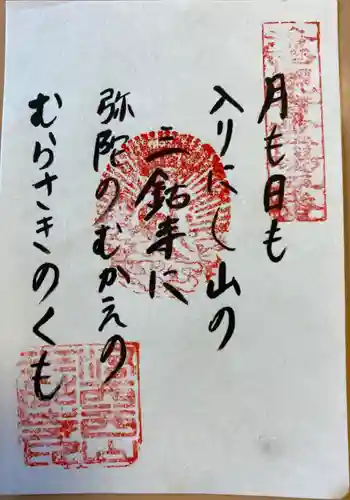 月も日も
入りにし山の
二鈷峯に
弥陀のむかえの
むらさきのくも